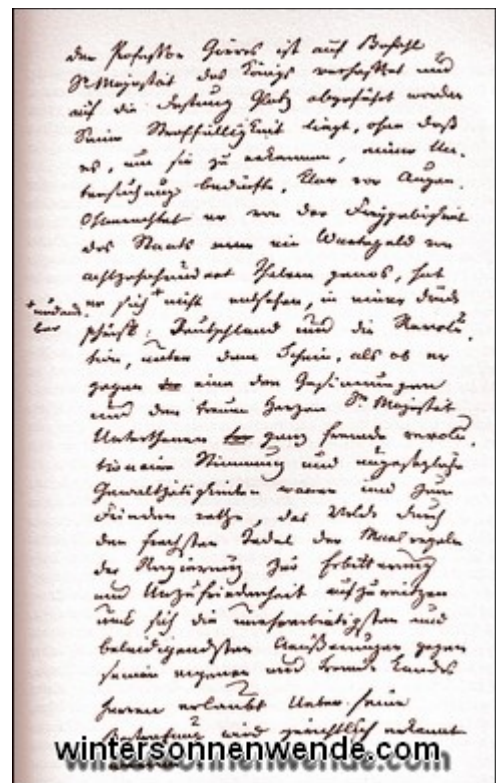 der Professor Görres ist auf Befehl
Sr Majestät des Königs verhaftet und
auf die Festung Glatz abgeführt worden
Seine Straffälligkeit liegt, ohne daß
es, um sie zu erkennen, einer Un-
tersuchung bedürfte, klar vor Augen.
Ohnerachtet er von der Freygebigkeit
des Staats ein Wartegeld von
achtzehnhundert Thalern genos, hat
er sich + nicht entsehen, in einer Druk
+ undank-
bar
schrift: Deutschland und die Revolu
tion, unter dem Schein, als ob er
gegen eine den Gesinnungen
und den treuen Herzen Sr Majestät
Unterthanen ganz fremde revolu
tionaire Stimmung und ungesetzliche
Gewaltthätigkeiten warne und zum
Frieden rathe, das Volk durch
den frechsten Tadel der Maasregeln
der Regierung zur Erbitterung
und Unzufriedenheit aufzureitzen
und sich die unehrerbietigsten und
beleidigendsten Aeußerungen gegen
seinen eigenen und fremde Landes
herren erlaubt Ueber seine
Bestrafung wird gerichtlich erkannt
wintersonnenwende.com